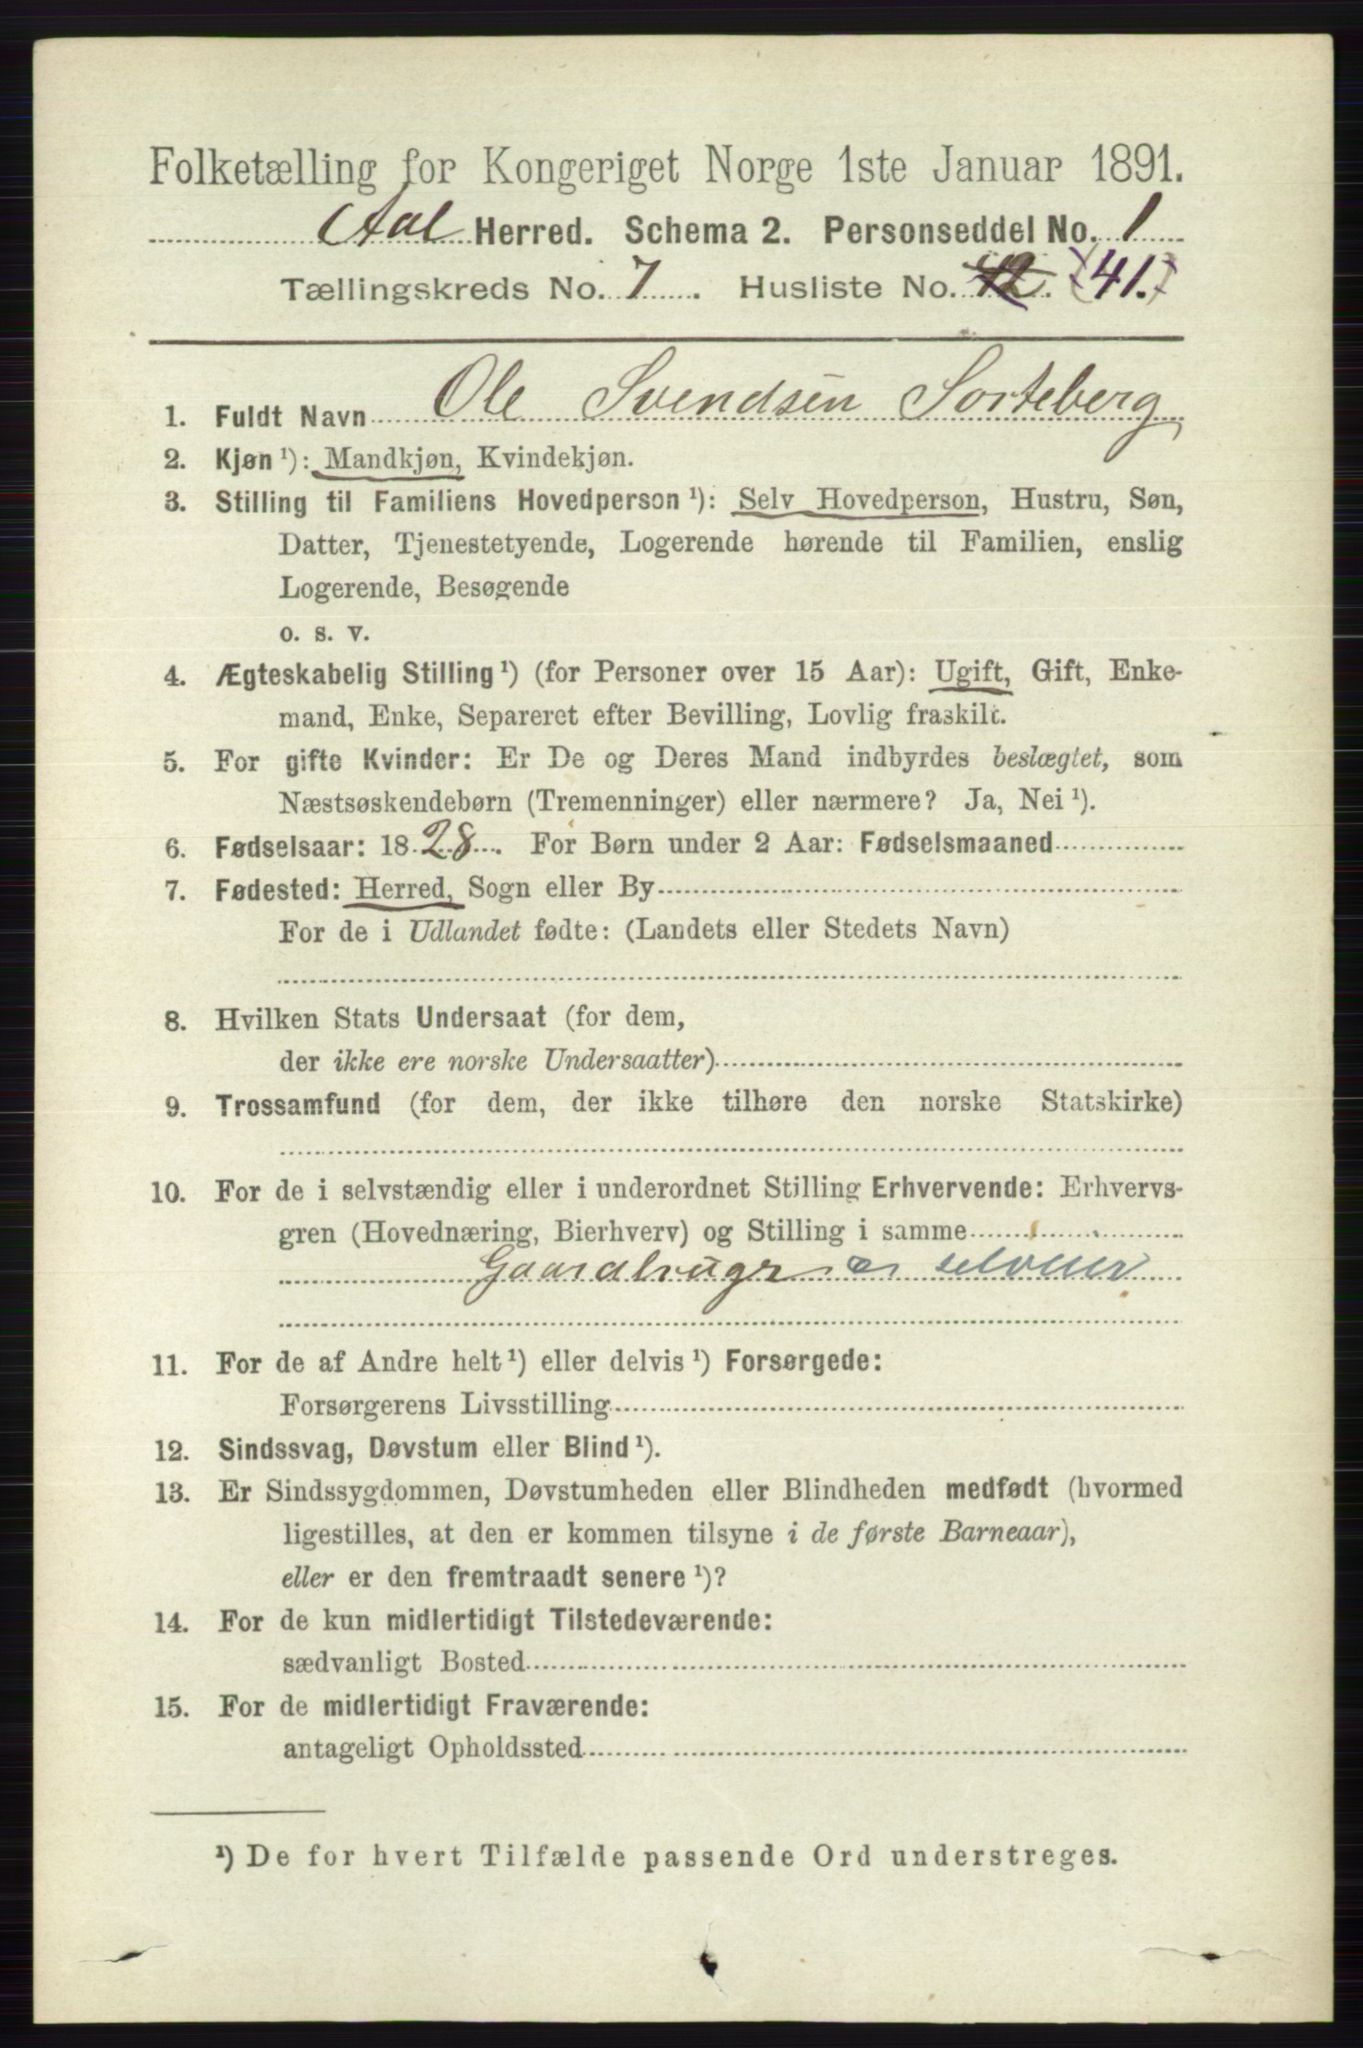 Folketælling for Kongeriget Norge 1ste Januar 1891.
Aal Herred. Schema 2. Personseddel No. 1
Tællingskreds No. 7. Husliste No. 42. (41.)
1. Fuldt Navn Ole Svendsen Sorteberg
2. Kjøn ¹): Mandkjøn, Kvindekjøn.
3. Stilling til Familiens Hovedperson ¹): Selv Hovedperson, Hustru, Søn,
Datter, Tjenestetyende, Logerende hørende til Familien, enslig
Logerende, Besøgende
o. s. v.
4. Ægteskabelig Stilling ¹) (for Personer over 15 Aar): Ugift, Gift, Enke-
mand, Enke, Separeret efter Bevilling, Lovlig fraskilt.
5. For gifte Kvinder: Er De og Deres Mand indbyrdes beslægtet, som
Næstsøskendebørn (Tremenninger) eller nærmere? Ja, Nei ¹).
6. Fødselsaar: 1828. For Børn under 2 Aar: Fødselsmaaned
7. Fødested: Herred, Sogn eller By
For de i Udlandet fødte: (Landets eller Stedets Navn)
8. Hvilken Stats Undersaat (for dem,
der ikke ere norske Undersaatter)
9. Trossamfund (for dem, der ikke tilhøre den norske Statskirke)
10. For de i selvstændig eller i underordnet Stilling Erhvervende: Erhvervs-
gren (Hovednæring, Bierhverv) og Stilling i samme
Gaardbruger selveier
11. For de af Andre helt ¹) eller delvis ¹) Forsørgede:
Forsørgerens Livsstilling
12. Sindssvag, Døvstum eller Blind ¹).
13. Er Sindssygdommen, Døvstumheden eller Blindheden medfødt (hvormed
ligestilles, at den er kommen tilsyne i de første Barneaar),
eller er den fremtraadt senere ¹)?
14. For de kun midlertidigt Tilstedeværende:
sædvanligt Bosted
15. For de midlertidigt Fraværende:
antageligt Opholdssted
¹) De for hvert Tilfælde passende Ord understreges.